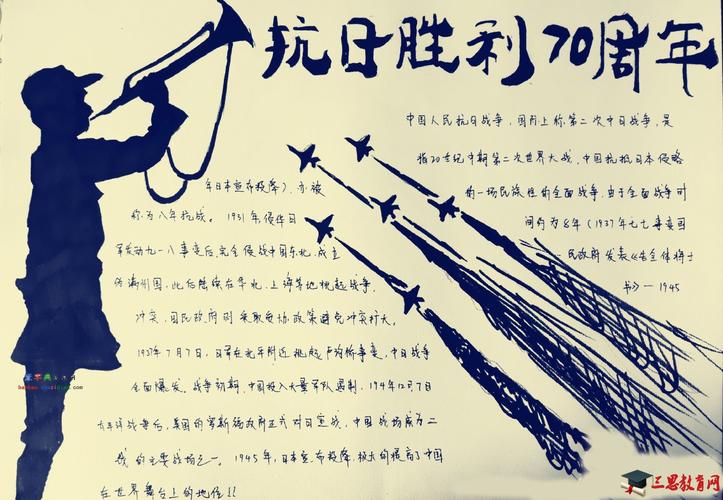 抗日胜利70周年
中国人民抗日战争,国际上称第二次中日战争,是
指20世纪中期第二次世界大战,中国抵抗日本侵略
的一场民族性的全面战争,由于全面战争时
间约为8年(1937年七七事变国
民政府发表《告全体将士
书》— 1945
年日本宣布投降),亦被
称为八年抗战。1931年侵华日
军发动九一八事变后完全侵战中国东北,成立
伪满州国,此后陆续在华北,上海等地挑起战争,
冲突,国民政府则采取妥协政策避免冲突扩大。
1937年7月7日,日军在北平附近挑起卢沟桥事变,中日战争
全面爆发。战争初期,中国投入大量军队遏制,194年12月7日
太平洋战争后,美国的罗斯福政府正式对日宣战,中国战场成为二
战的主要战场之一。1945年,日本宣布投降,极大的提高了中国
在世界舞台上的地位!!
三思教育网